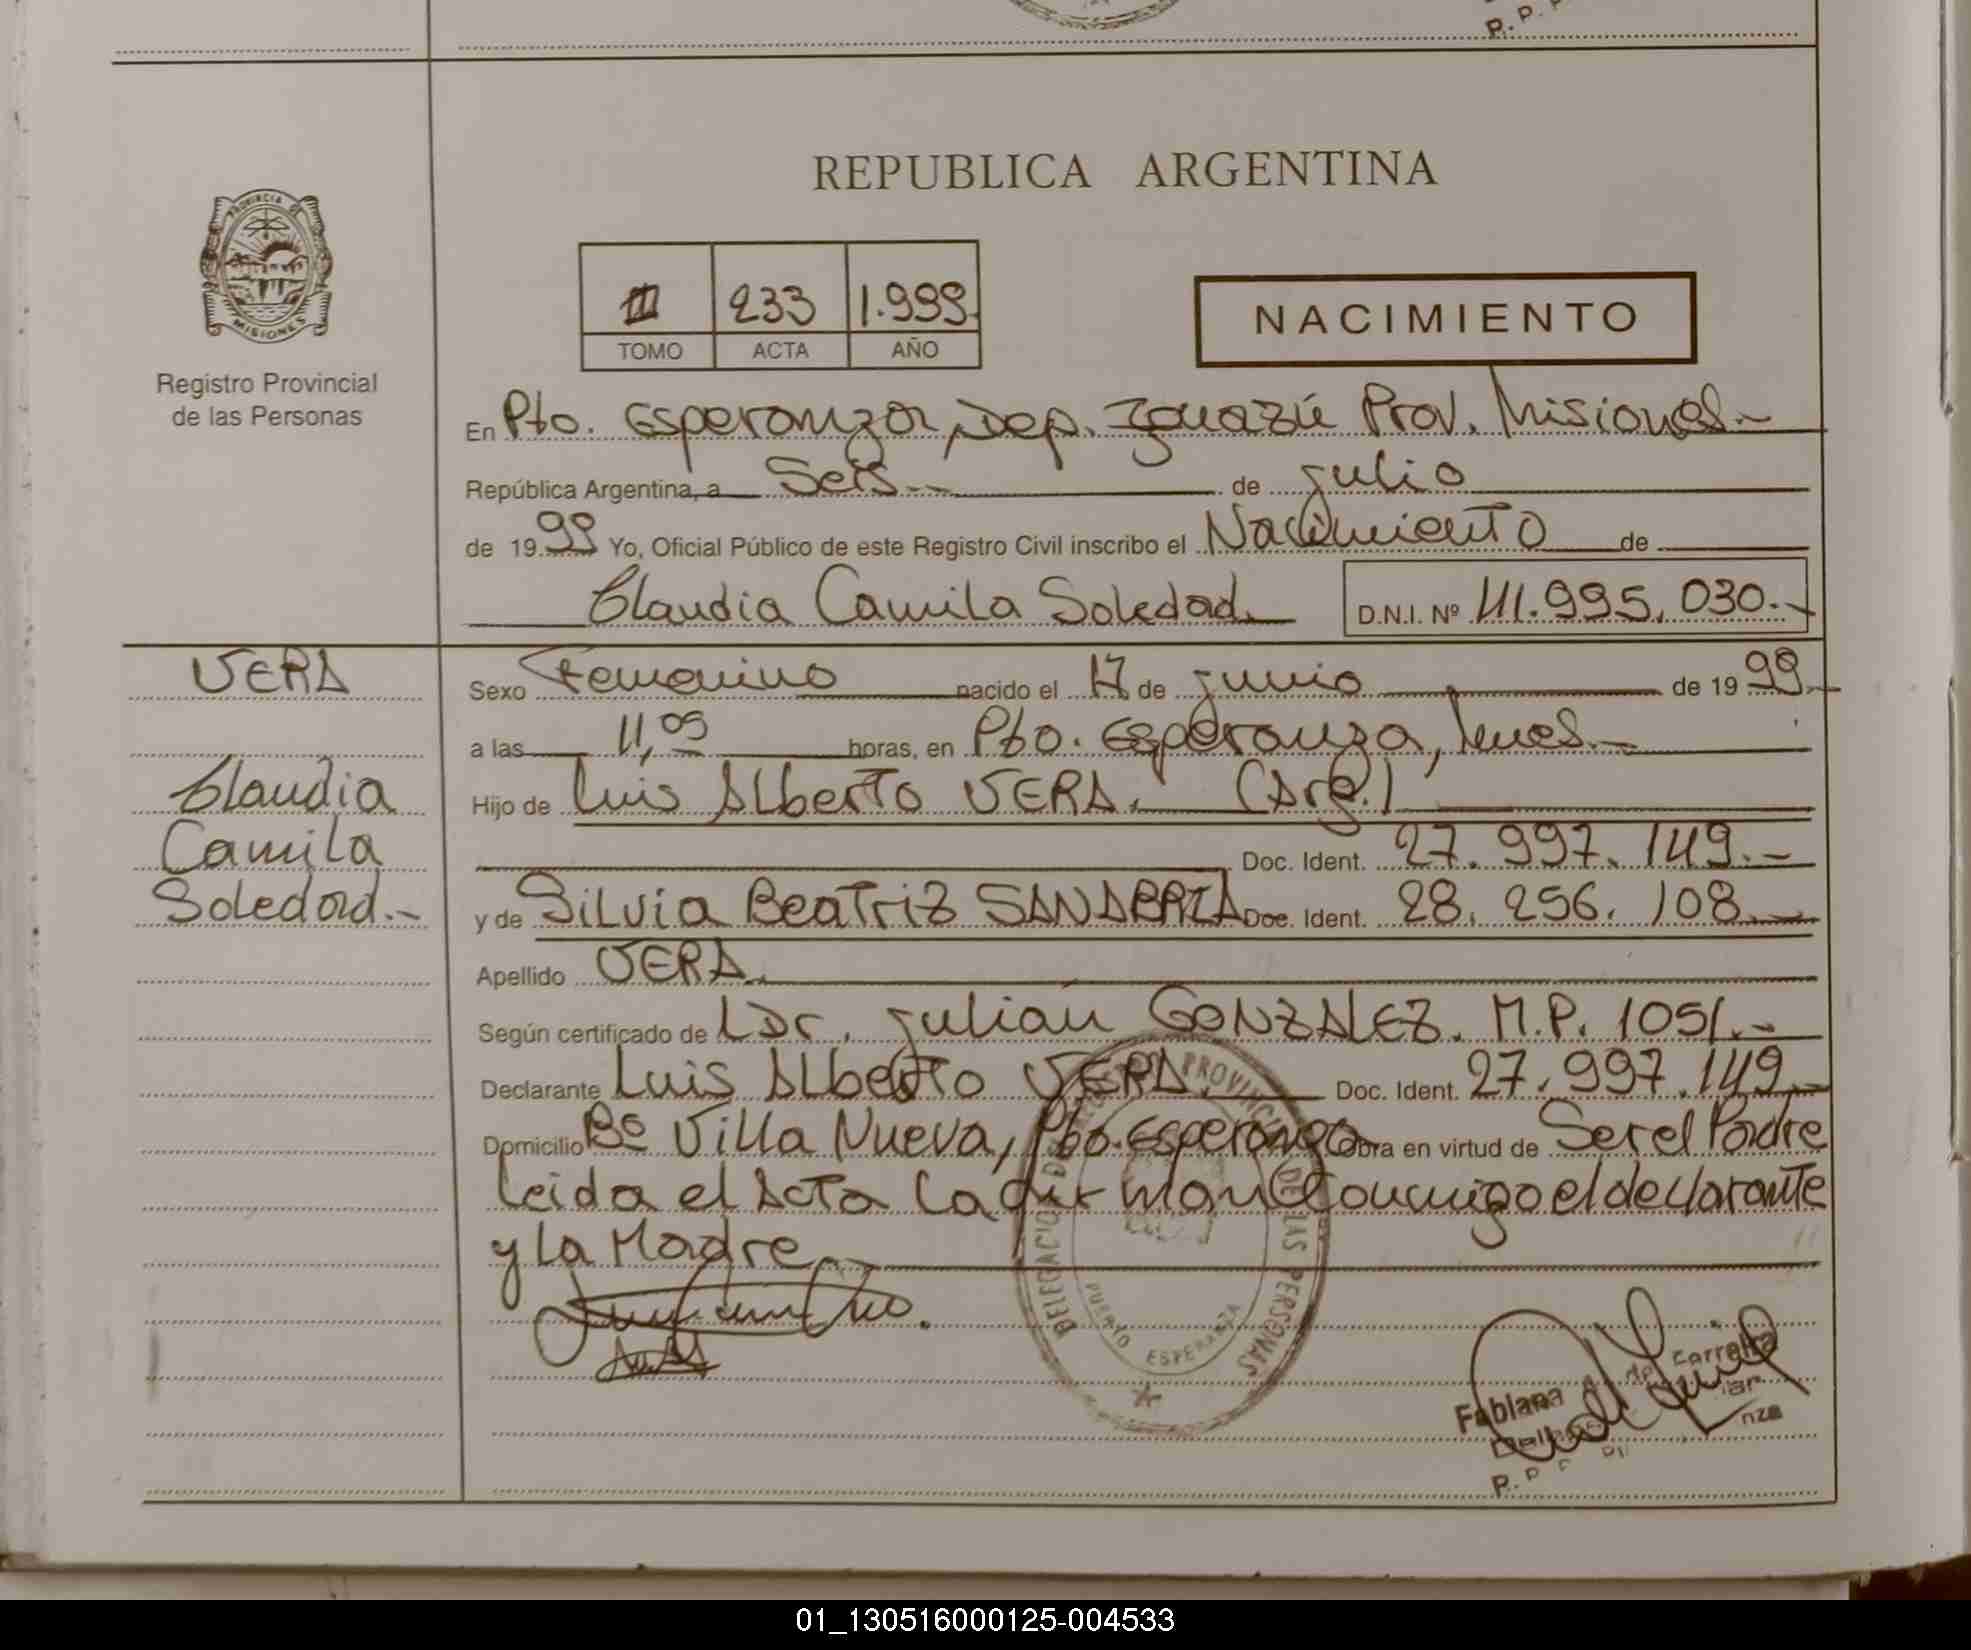 P. P.
REPUBLICA ARGENTINA
PROVINCIA DE
MISIONES
Registro Provincial
de las Personas
III 233 1.999
TOMO ACTA AÑO
NACIMIENTO
En Pto. Esperanza, Dep. Iguazú Prov. Misiones.-
República Argentina, a Seis.-- de julio
de 1999 Yo, Oficial Público de este Registro Civil inscribo el Nacimiento de
Claudia Camila Soledad. D.N.I. Nº 41.995.030.-
VERA
Claudia
Camila
Soledad.-
Sexo Femenino nacido el 17 de junio de 1999.-
a las 11,09 horas, en Pto. Esperanza, Mnes.-
Hijo de Luis Alberto VERA. (Arg.)
Doc. Ident. 27.997.149.-
y de Silvia Beatriz SANABRIA Doc. Ident. 28.256.108.-
Apellido VERA.
Según certificado de Dr. Julián GONZALEZ. M.P. 1051.-
Declarante Luis Alberto VERA. Doc. Ident. 27.997.149.-
Domicilio Bº Villa Nueva, Pto. Esperanza Obra en virtud de Ser el Padre
Leida el Acta la firman Conmigo el declarante
y La Madre.
PROVINCIAL DE LAS PERSONAS
PUERTO ESPERANZA
Fabiana de
P. P.
01_130516000125-004533